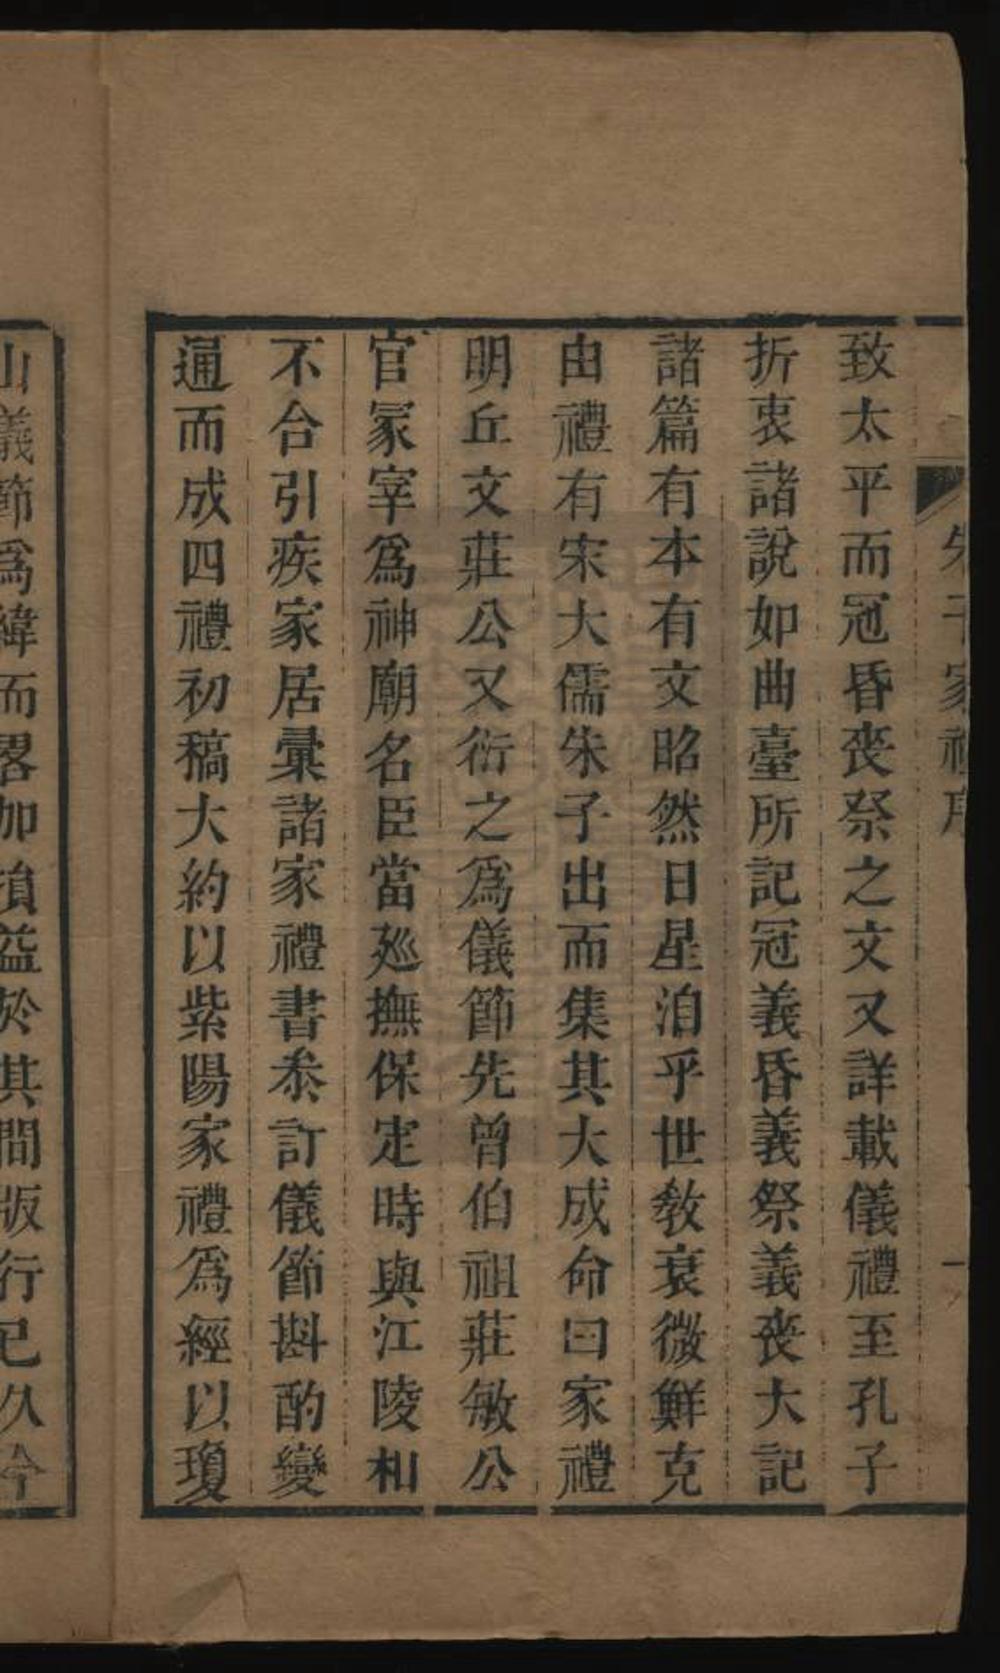 朱子家禮序
一
致太平而冠昏喪祭之文又詳載儀禮至孔子
折衷諸說如曲臺所記冠義昏義祭義喪大記
諸篇有本有文昭然日星洎乎世敎衰微鮮克
由禮有宋大儒朱子出而集其大成命曰家禮
明丘文莊公又衍之爲儀節先曾伯祖莊敏公
官冡宰爲神廟名臣當廵撫保定時與江陵相
不合引疾家居彙諸家禮書叅訂儀節斟酌變
通而成四禮初稿大約以紫陽家禮爲經以瓊
山儀節爲緯而畧加損益於其間版行已久今